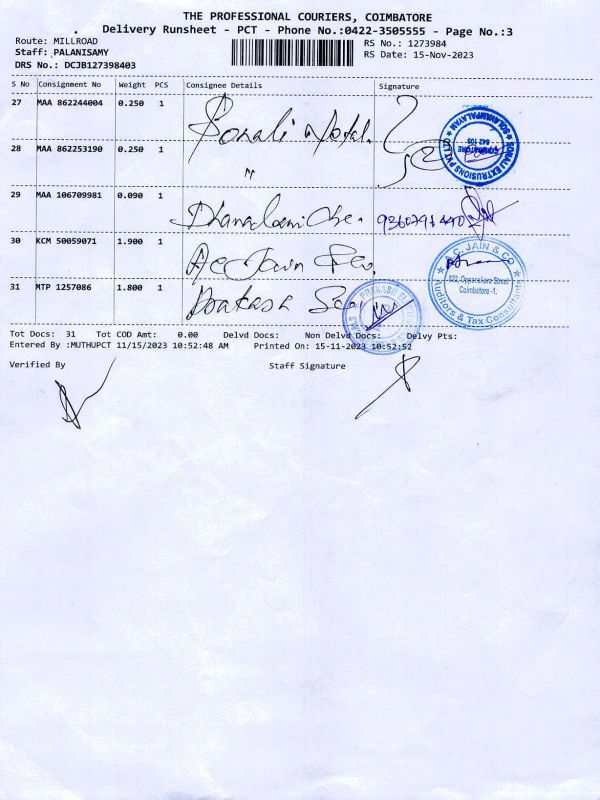 THE PROFESSIONAL COURIERS, COIMBATORE
Delivery Runsheet - PCT - Phone No.:0422-3505555 - Page No.:3
Route: MILLROAD
RS No.: 1273984
Staff: PALANISAMY
RS Date: 15-Nov-2023
DRS No.: DCJB127398403
S No Consignment No Weight PCS Consignee Details Signature
27 MAA 862244004 0.250 1 Sonali
28 MAA 862253190 0.250 1 "
SONALI EXTRUSIONS PVT LTD
COIMBATORE
642 109
29 MAA 106709981 0.090 1
30 KCM 50059071 1.900 1
A.C. JAIN & CO
Coimbatore -1.
Auditors & Tax Consultants
31 MTP 1257086 1.800 1 Prakash
PRAKASH
Tot Docs: 31 Tot COD Amt: 0.00 Delvd Docs: Non Delvd Docs: Delvy Pts:
Entered By :MUTHUPCT 11/15/2023 10:52:48 AM Printed On: 15-11-2023 10:52:52
Verified By Staff Signature